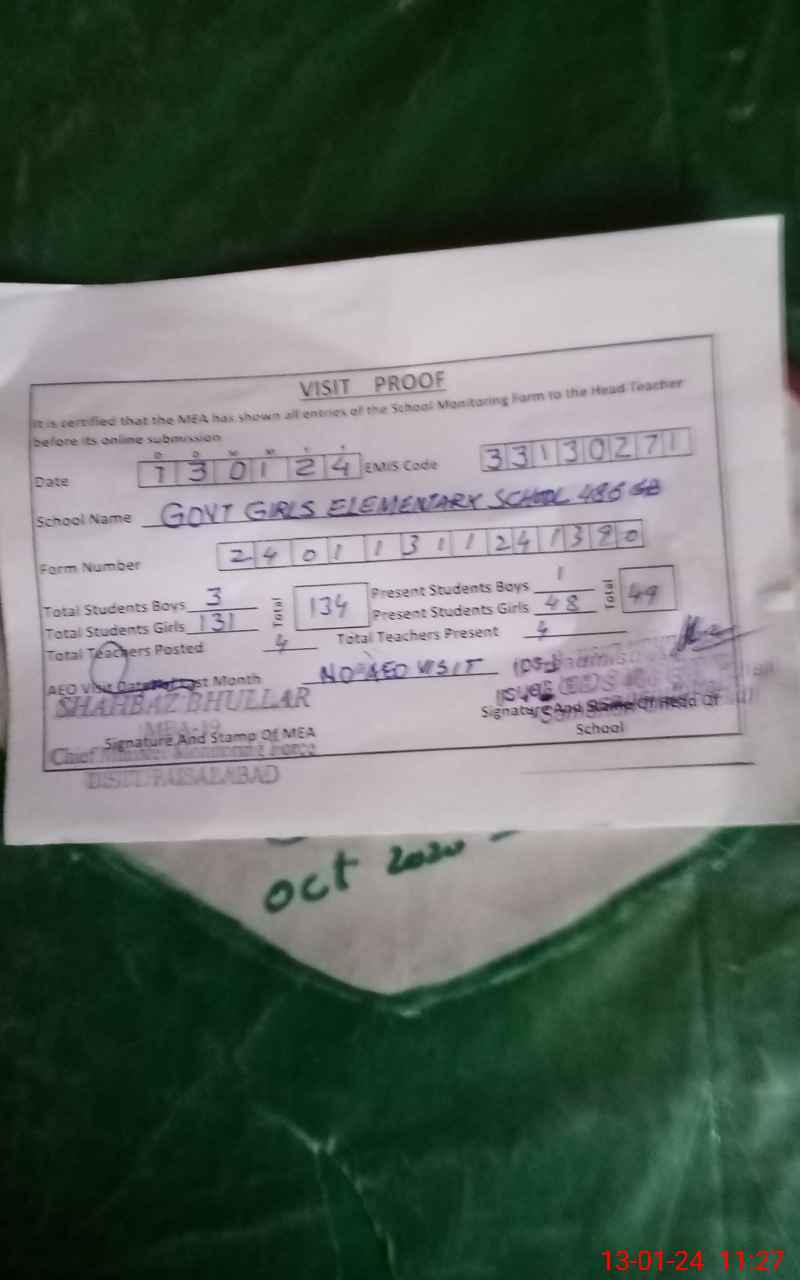 VISIT PROOF
It is certified that the MEA has shown all entries of the School Monitoring Form to the Head Teacher
before its online submission
D D M M Y Y
Date 130124 EMIS Code 33130271
School Name GOVT GIRLS ELEMENTARY SCHOOL 486 GB
Form Number 240113112413
Total Students Boys 3 Total 134 Present Students Boys 1 Total 49
Total Students Girls 131 Present Students Girls 48
Total Teachers Posted 4 Total Teachers Present 4
AEO Visit Last Month NO AEO VISIT
SHAHBAZ BHULLAR
MEA-19
Signature And Stamp Of MEA
Signature And Stamp Of Head Of
School
Chief Monitoring Force
DISTT: FAISALABAD
oct 2020
13-01-24 11:27